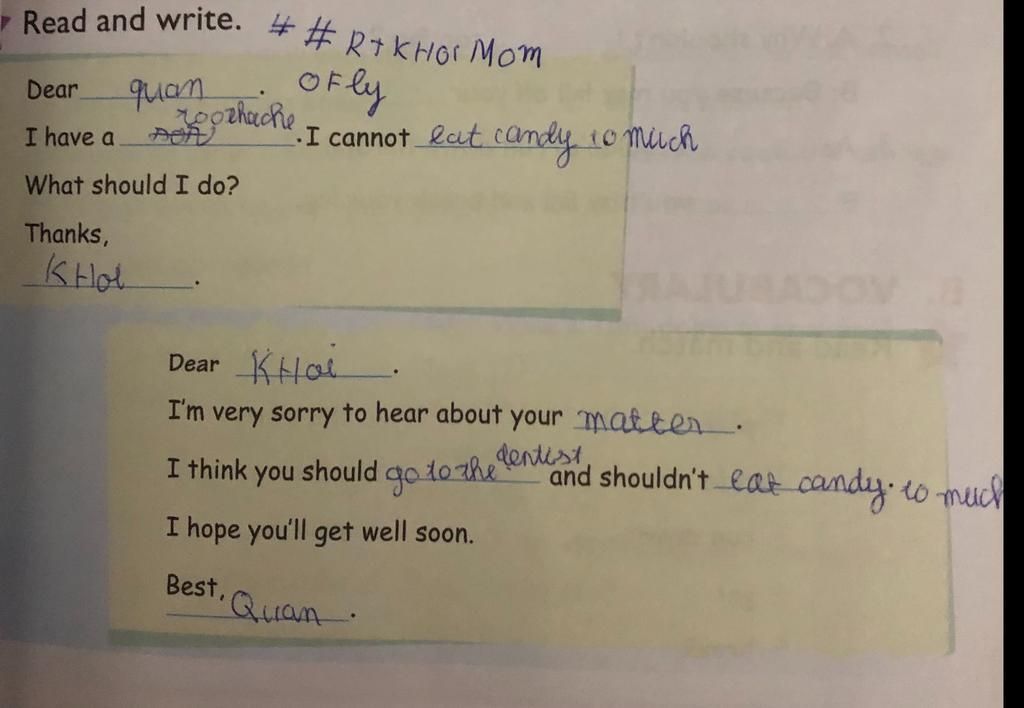 Read and write. # # R+KHOI MOM
Dear quan. OFly
I have a toothache. I cannot eat candy to much
What should I do?
Thanks,
KHOI.
Dear KHOi.
I'm very sorry to hear about your matter.
I think you should go to the dentist and shouldn't eat candy. to much
I hope you'll get well soon.
Best,
Quan.
B. VOCABULARY
Read and match